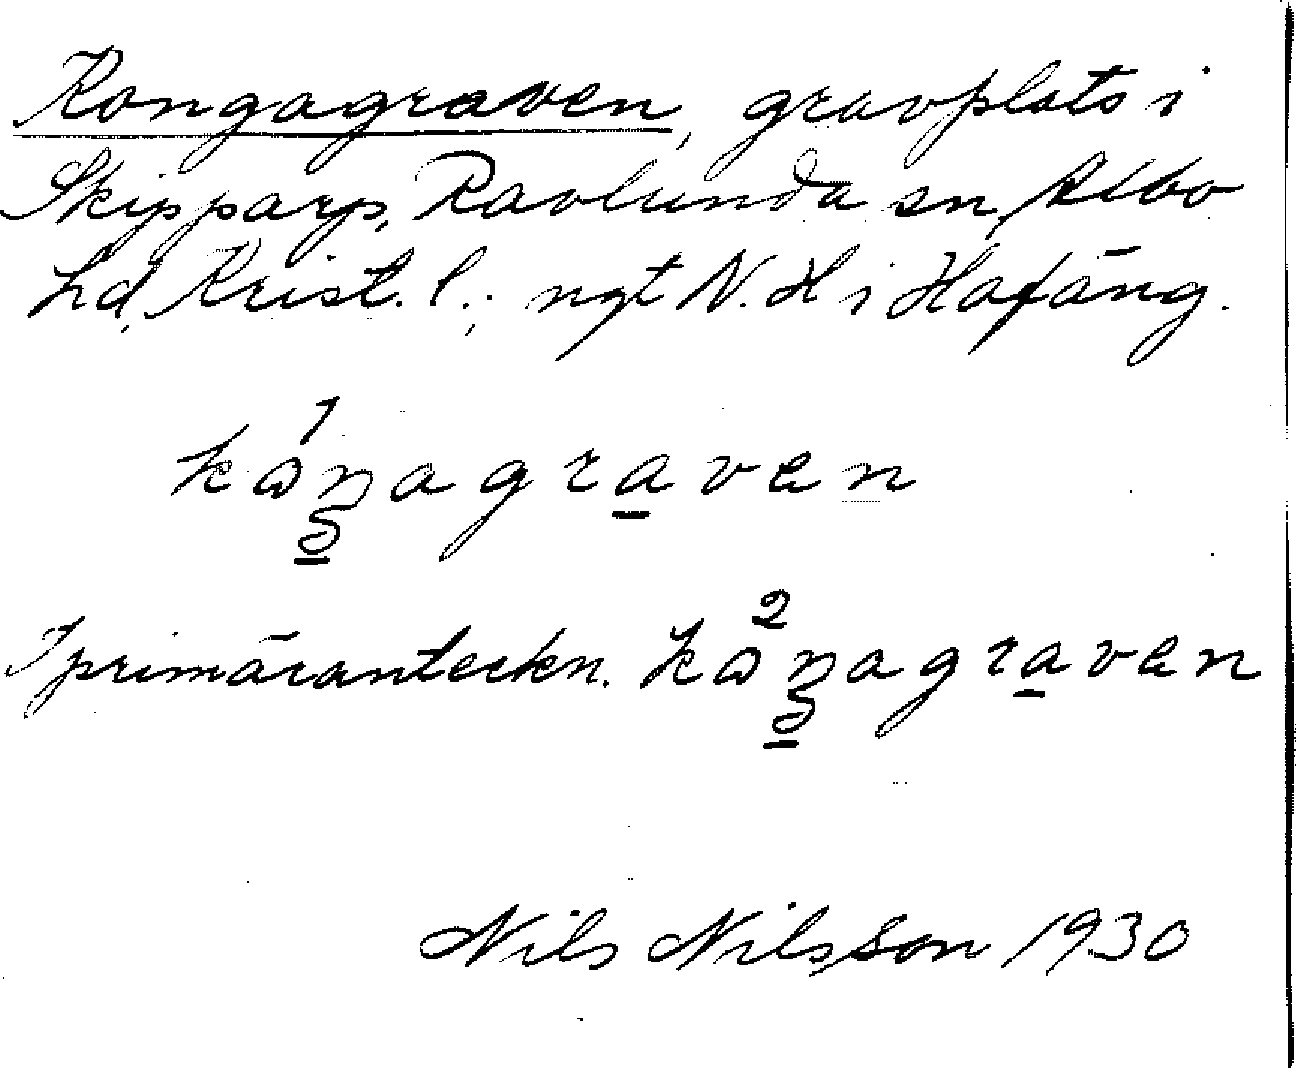 Kongagraven, gravplats i
Skipparp, Ravlunda sn, Albo
hd, Krist. l.; ngt N. H i Hafäng.
1
kωŋagraven
I primäranteckn. kω²ŋagraven
Nils Nilsson 1930